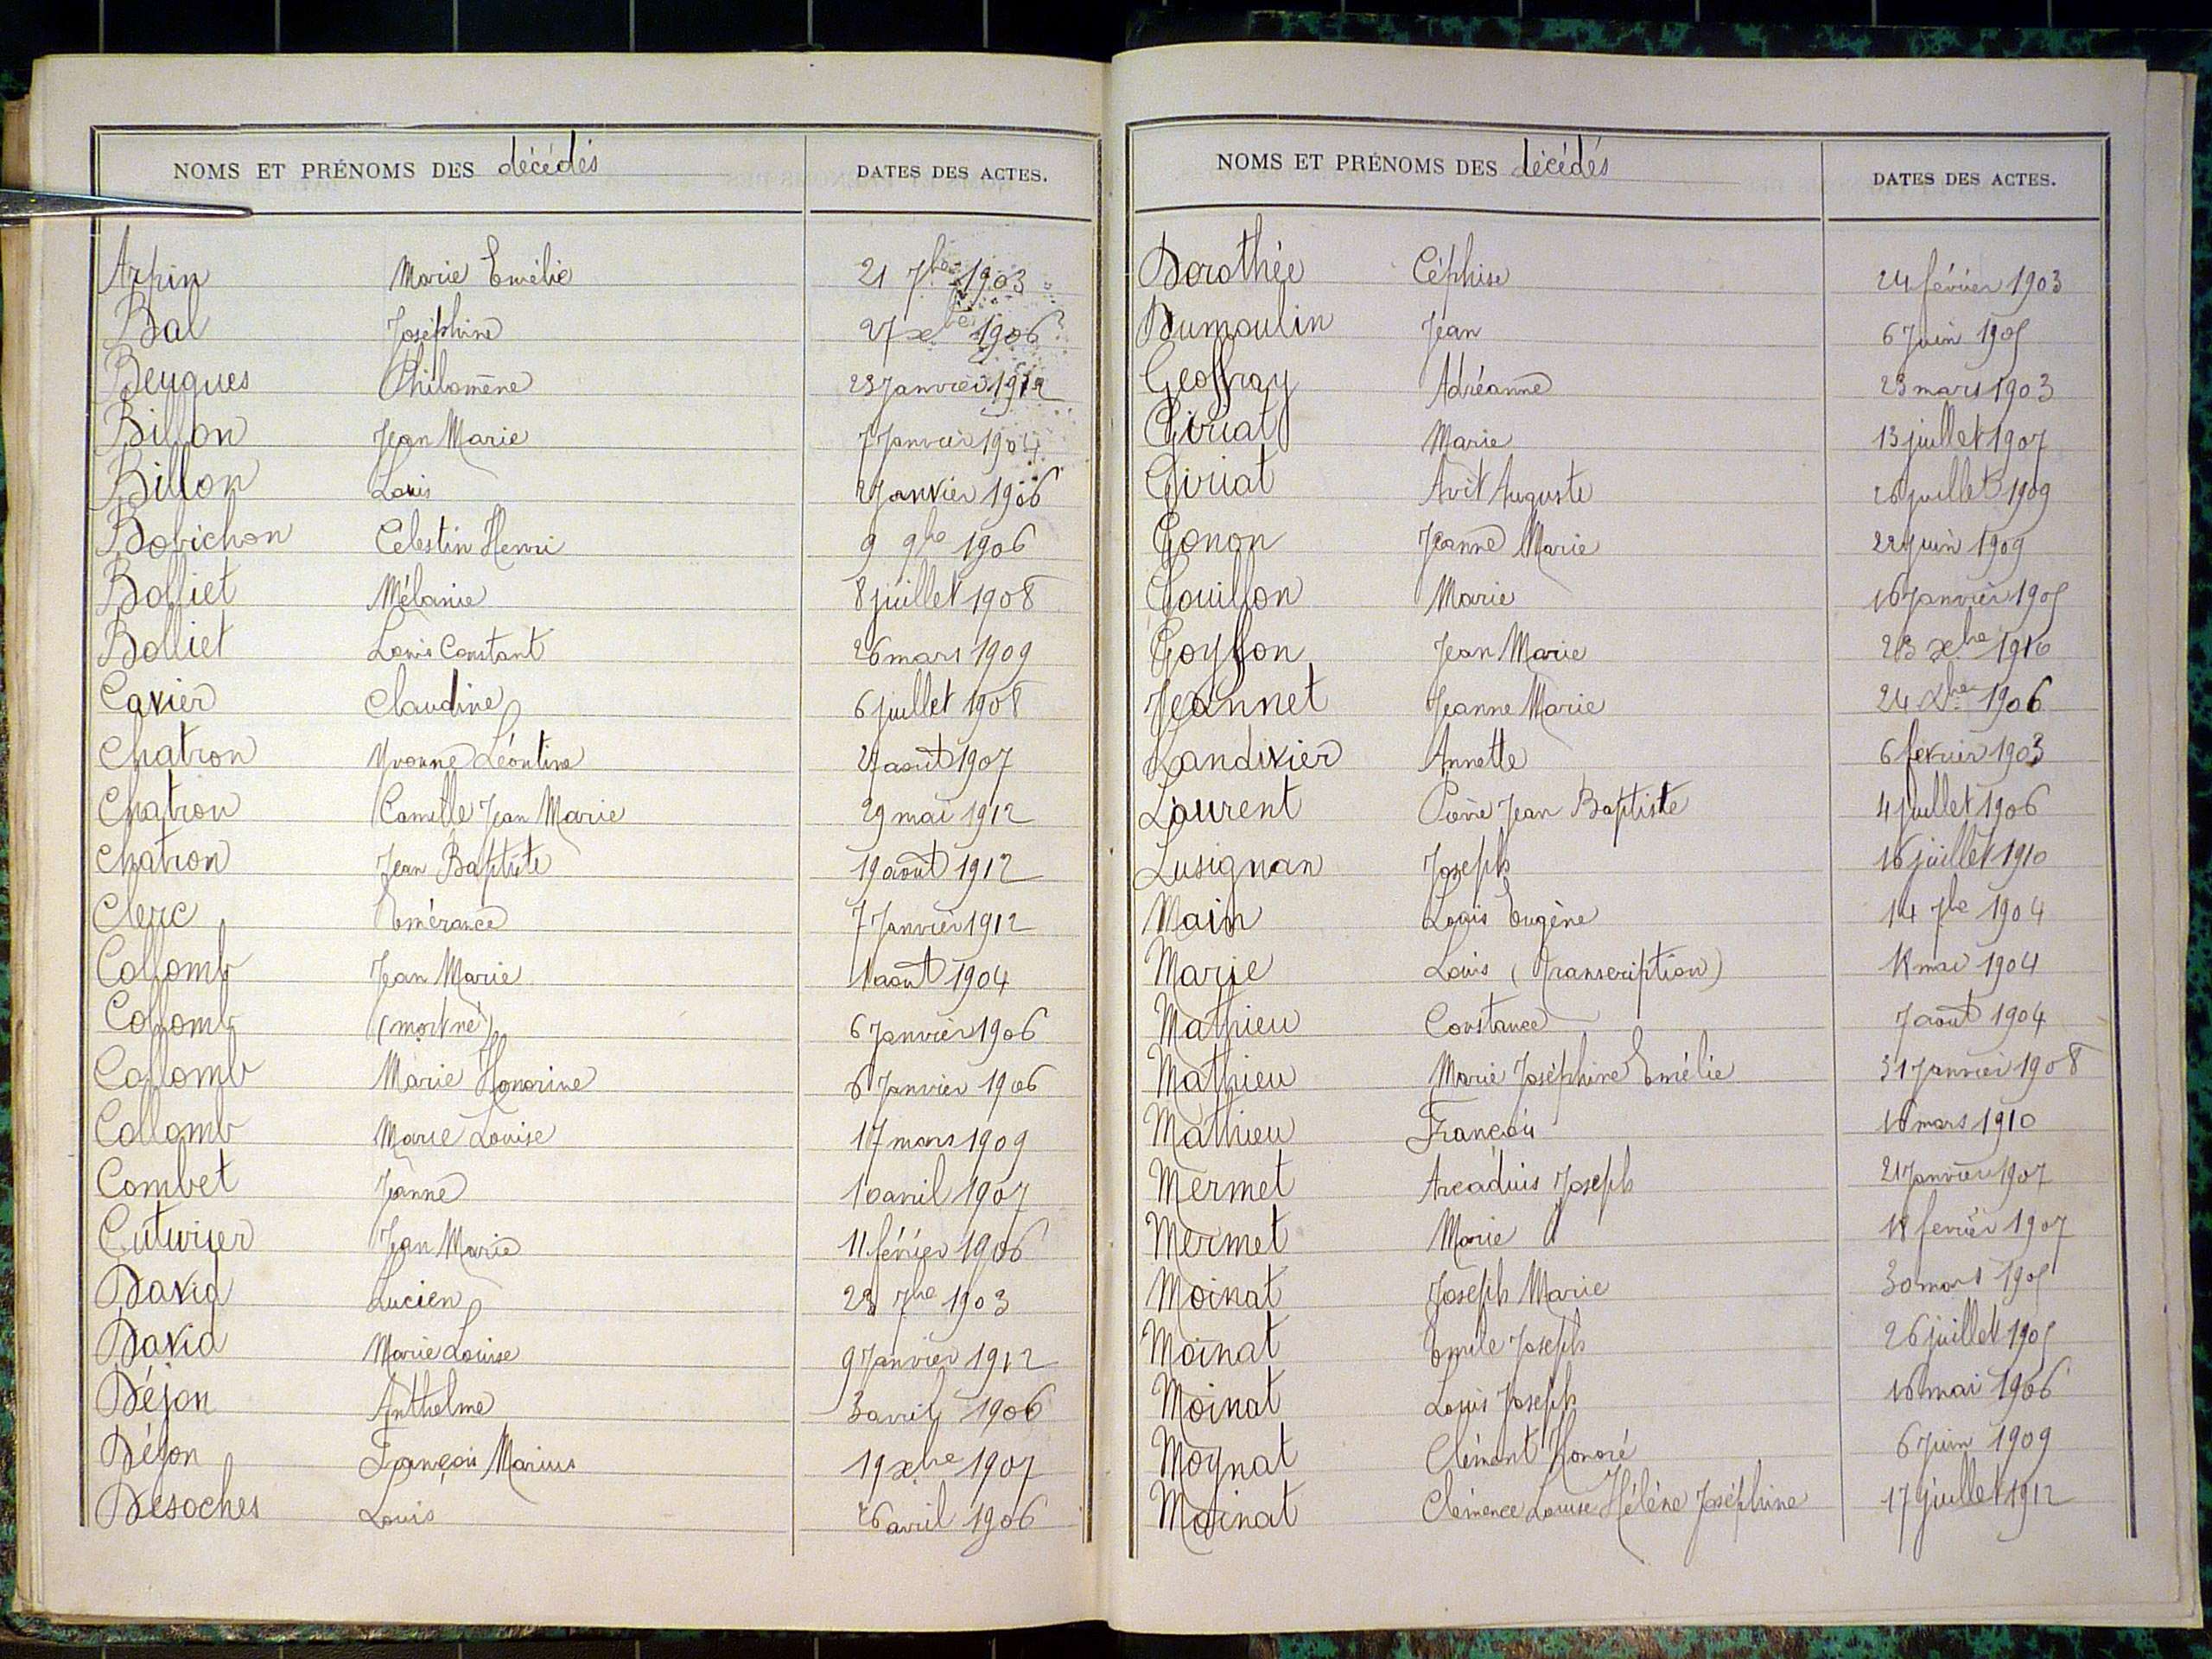 NOMS ET PRÉNOMS DES décédés DATES DES ACTES.
Arpin Marie Emélie 21 7bre 1903
Bal Joséphine 27 xbre 1906
Beuques Philomène 23 Janvier 1912
Billon Jean Marie 7 Janvier 1904
Billon Louis 2 Janvier 1906
Bobichon Célestin Henri 9 9bre 1906
Bolliet Mélanie 8 juillet 1908
Bolliet Louis Constant 26 mars 1909
Cavier Claudine 6 juillet 1908
Chatron Yvonne Léontine août 1907
Chatron Camille Jean Marie 29 mai 1912
Chatron Jean Baptiste 19 août 1912
Clerc Emérance 7 Janvier 1912
Collomb Jean Marie 1 août 1904
Collomb (mort né) 6 Janvier 1906
Collomb Marie Honorine 6 Janvier 1906
Collomb Marie Louise 17 mars 1909
Combet Jeanne 10 avril 1907
Cuturier Jean Marie 11 février 1906
David Lucien 28 7bre 1903
David Marie Louise 9 Janvier 1912
Déjon Anthelme 3 avril 1906
Déjon François Marius 19 xbre 1907
Desoches Louis 26 avril 1906
NOMS ET PRÉNOMS DES décédés DATES DES ACTES.
Dorothée Céphise 24 février 1903
Dumoulin Jean 6 Juin 1905
Geoffray Adréanne 23 mars 1903
Giriat Marie 13 juillet 1907
Giriat Avit Auguste 26 juillet 1909
Gonon Jeanne Marie 22 juin 1909
Gouillon Marie 16 Janvier 1905
Goyffon Jean Marie 23 xbre 1910
Jeannet Jeanne Marie 24 xbre 1906
Landivier Annette 6 février 1903
Laurent Pierre Jean Baptiste 4 juillet 1906
Lusignan Joseph 16 juillet 1910
Main Louis Eugène 14 7bre 1904
Marie Louis (Transcription) mai 1904
Mathieu Constance 7 août 1904
Mathieu Marie Joséphine Emélie 31 Janvier 1908
Mathieu François 16 mars 1910
Mermet Arcaduis Joseph 21 Janvier 1907
Mermet Marie février 1907
Moinat Joseph Marie 30 mars 1905
Moinat Emile Joseph 26 juillet 1905
Moinat Louis Joseph 16 mai 1906
Moynat Clément Honoré 6 Juin 1909
Moinat Clémence Louise Hélène Joséphine 17 juillet 1912